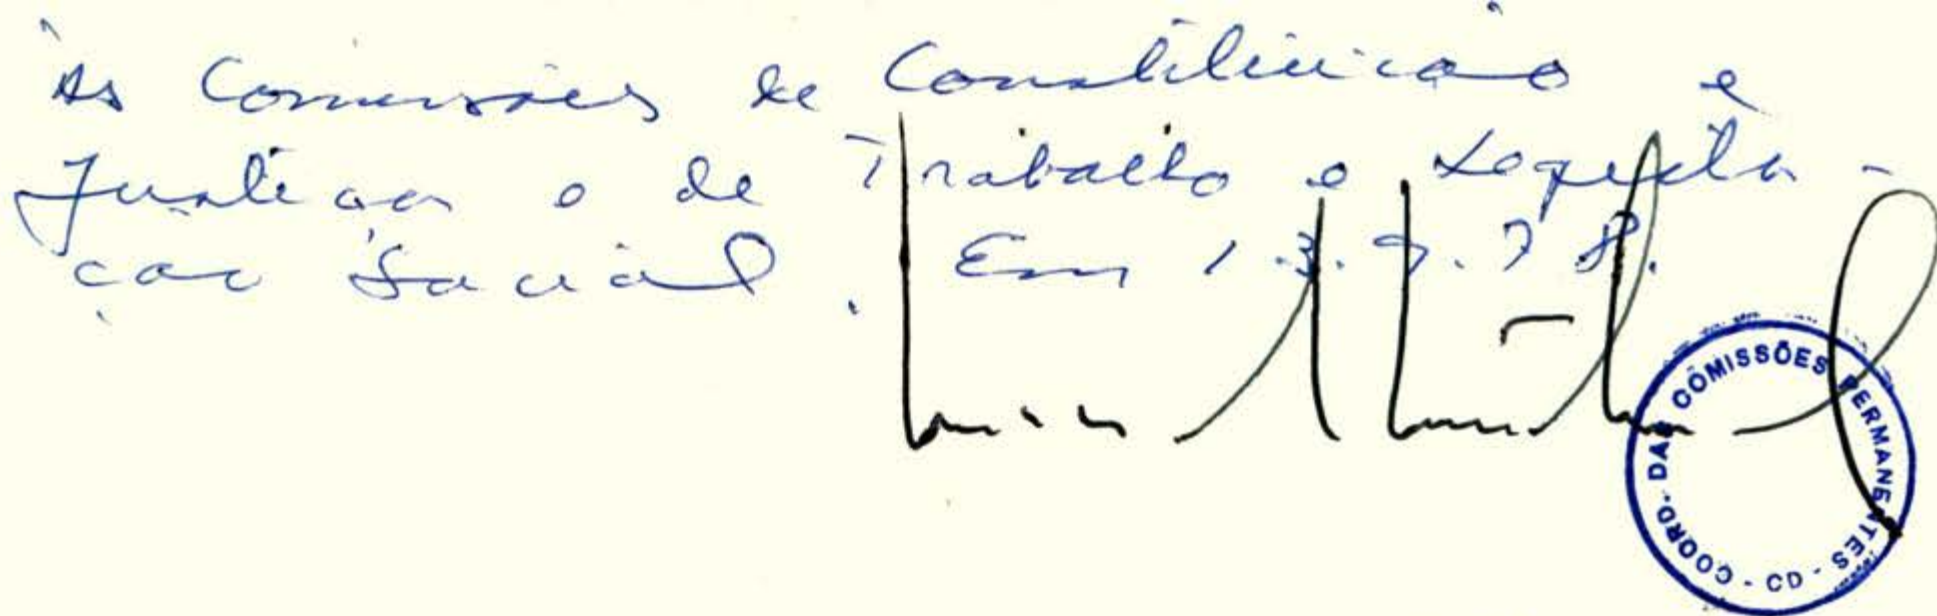 Às Comissões de Constituição e
Justiça e de Trabalho e Legisla-
ção Social. Em 1.3.9.78.
COORD. DAS COMISSÕES PERMANENTES - CD -